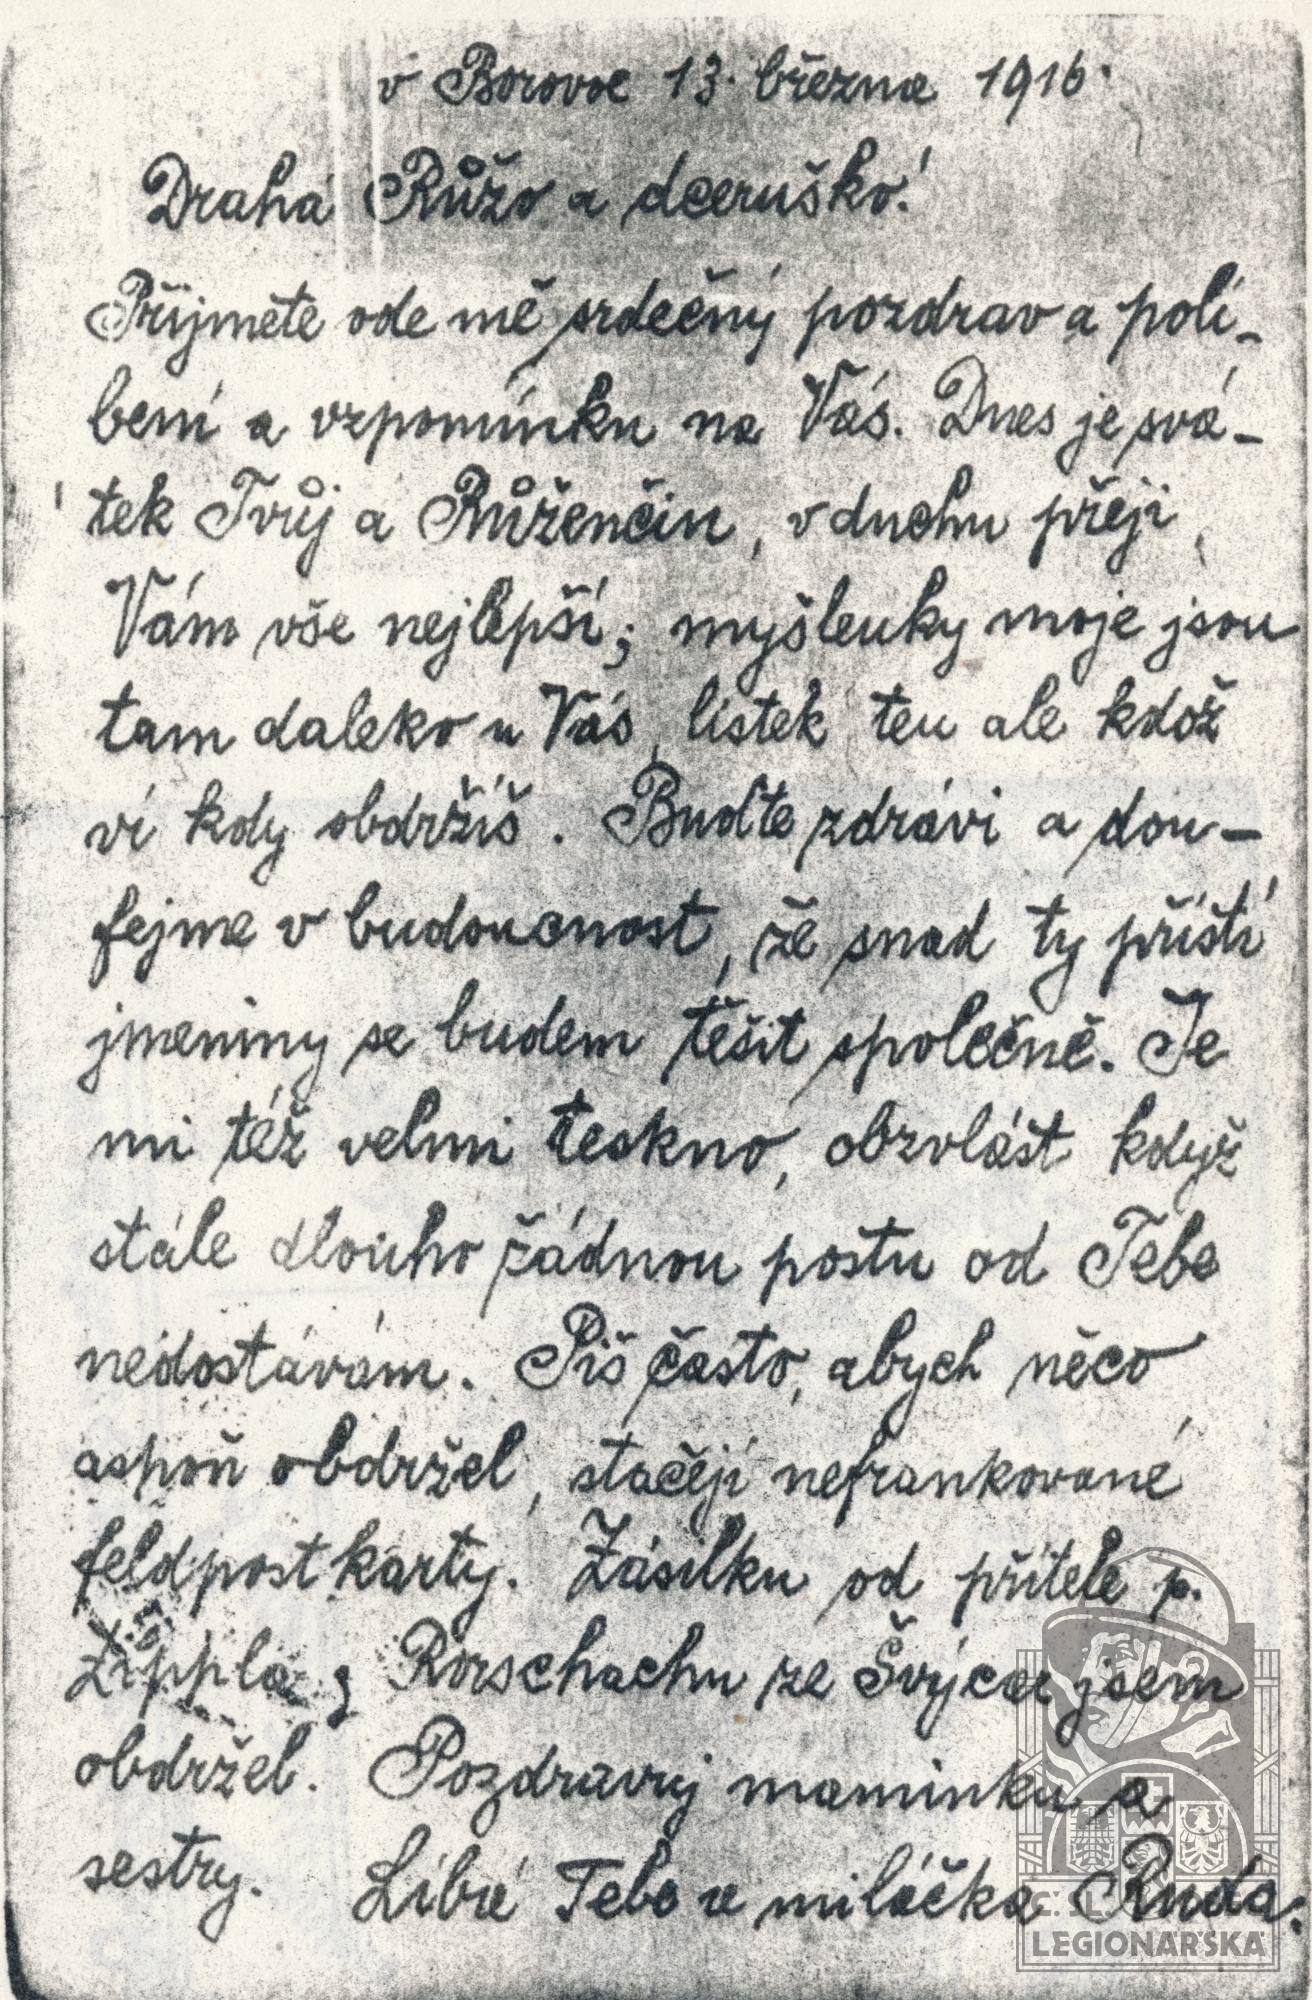 v Borovoe 13. března 1916.
Drahá Růžo a dceruško!
Přijměte ode mě srdečný pozdrav a polí-
bení a vzpomínku na Vás. Dnes je svá-
tek Tvůj a Růženčin, v duchu přeji
Vám vše nejlepší; myšlenky moje jsou
tam daleko u Vás, lístek ten ale kdož
ví kdy obdržíš. Buďte zdrávi a dou-
fejme v budoucnost, že snad ty příští
jmeniny se budem těšit společně. Je
mi též velmi teskno, obzvlášt když
stále dlouho žádnou poštu od Tebe
nedostávám. Piš často, abych něco
aspoň obdržel, stačejí nefrankované
feldpostkarty. Zásilku od přítele p.
Zippla z Rorschachu ze Švýcar jsem
obdržel. Pozdravuj maminku a
sestry. Líbá Tebe a miláčka Ruda.
Č. SL.
LEGIONÁŘSKÁ